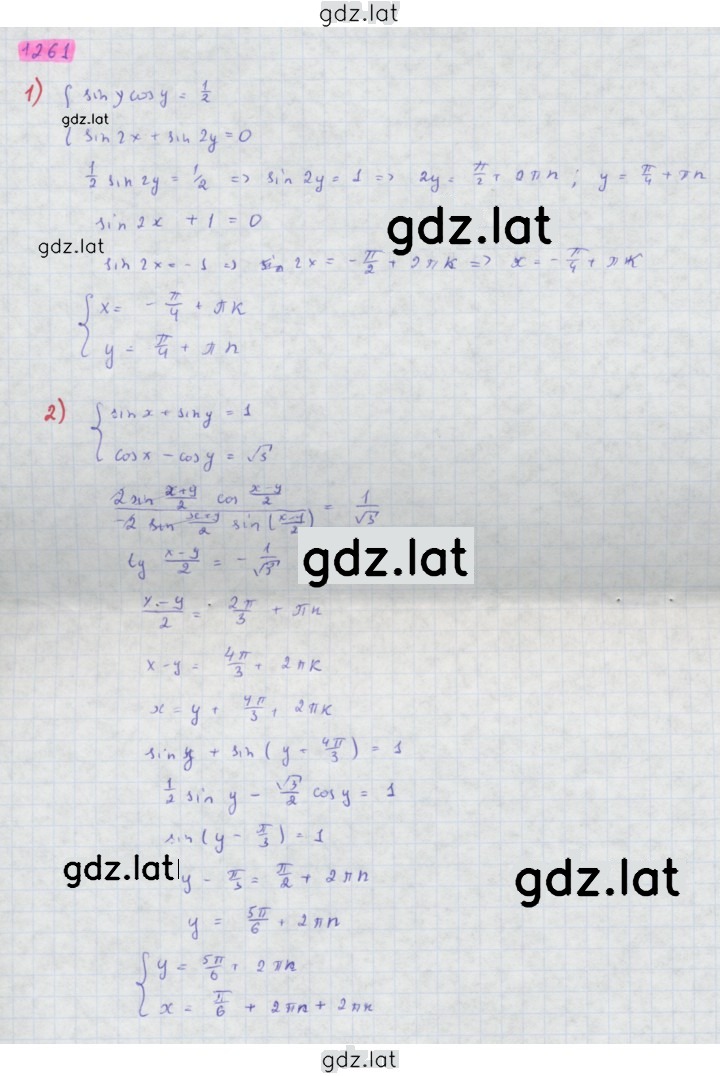 gdz.lat
1261
1) { sin y cos y = 1/2
gdz.lat
sin 2x + sin 2y = 0
1/2 sin 2y = 1/2 => sin 2y = 1 => 2y = π/2 + 2πn ; y = π/4 + πn
gdz.lat
sin 2x + 1 = 0
gdz.lat
sin 2x = -1 => sin 2x = -π/2 + 2πk => x = -π/4 + πk
{ x = -π/4 + πk
y = π/4 + πn
2) { sin x + sin y = 1
cos x - cos y = √3
(2 sin (x+y)/2 cos (x-y)/2) / (-2 sin (x+y)/2 sin((x-y)/2)) = 1/√3
gdz.lat
tg (x-y)/2 = -1/√3
(x-y)/2 = 2π/3 + πn
x-y = 4π/3 + 2πk
x = y + 4π/3 + 2πk
sin y + sin(y + 4π/3) = 1
1/2 sin y - √3/2 cos y = 1
sin(y - π/3) = 1
gdz.lat
y - π/3 = π/2 + 2πn
gdz.lat
y = 5π/6 + 2πn
{ y = 5π/6 + 2πn
x = π/6 + 2πn + 2πk
gdz.lat